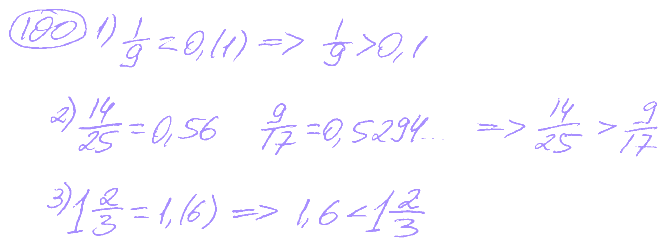 180 1) 1/9 = 0,(1) => 1/9 > 0,1
2) 14/25 = 0,56 9/17 = 0,5294... => 14/25 > 9/17
3) 1 2/3 = 1,(6) => 1,6 < 1 2/3